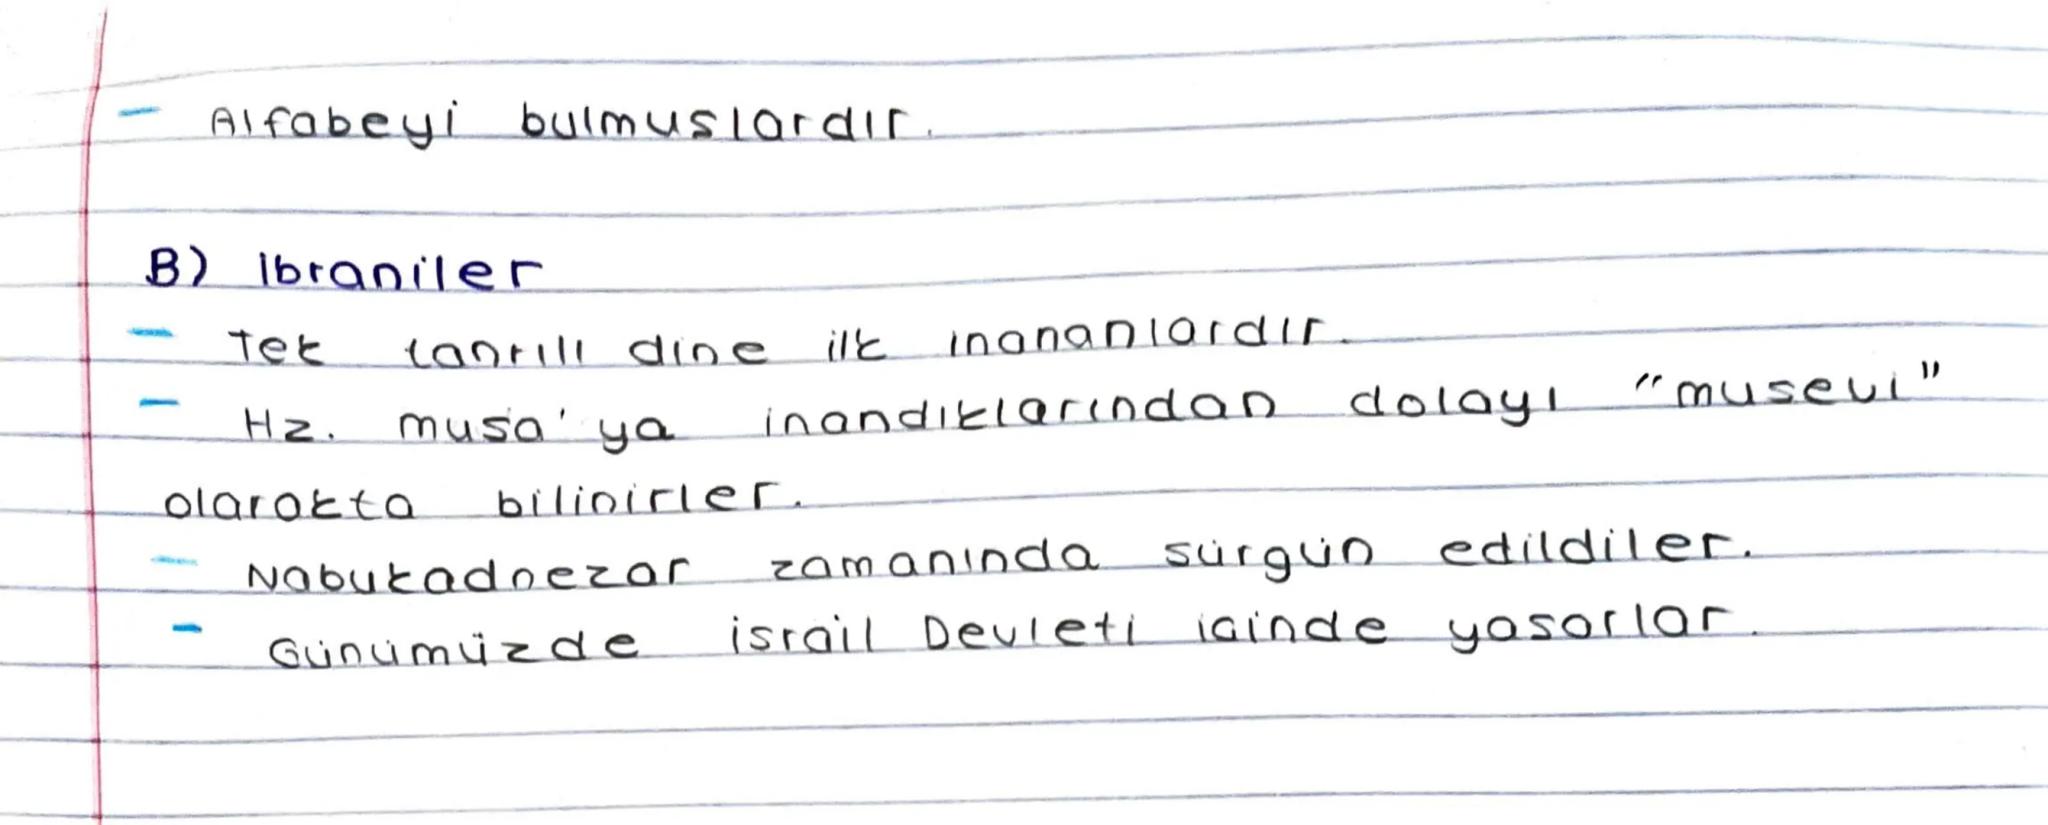 - Alfabeyi bulmuslardır.
B) Ibraniler
- Tek tanrılı dine ilk inananlardır.
- Hz. musa'ya inandıklarından dolayı "musevi"
olarakta bilinirler.
- Nabukadnezar zamanında sürgün edildiler.
- Günümüzde israil Devleti icinde yasarlar.